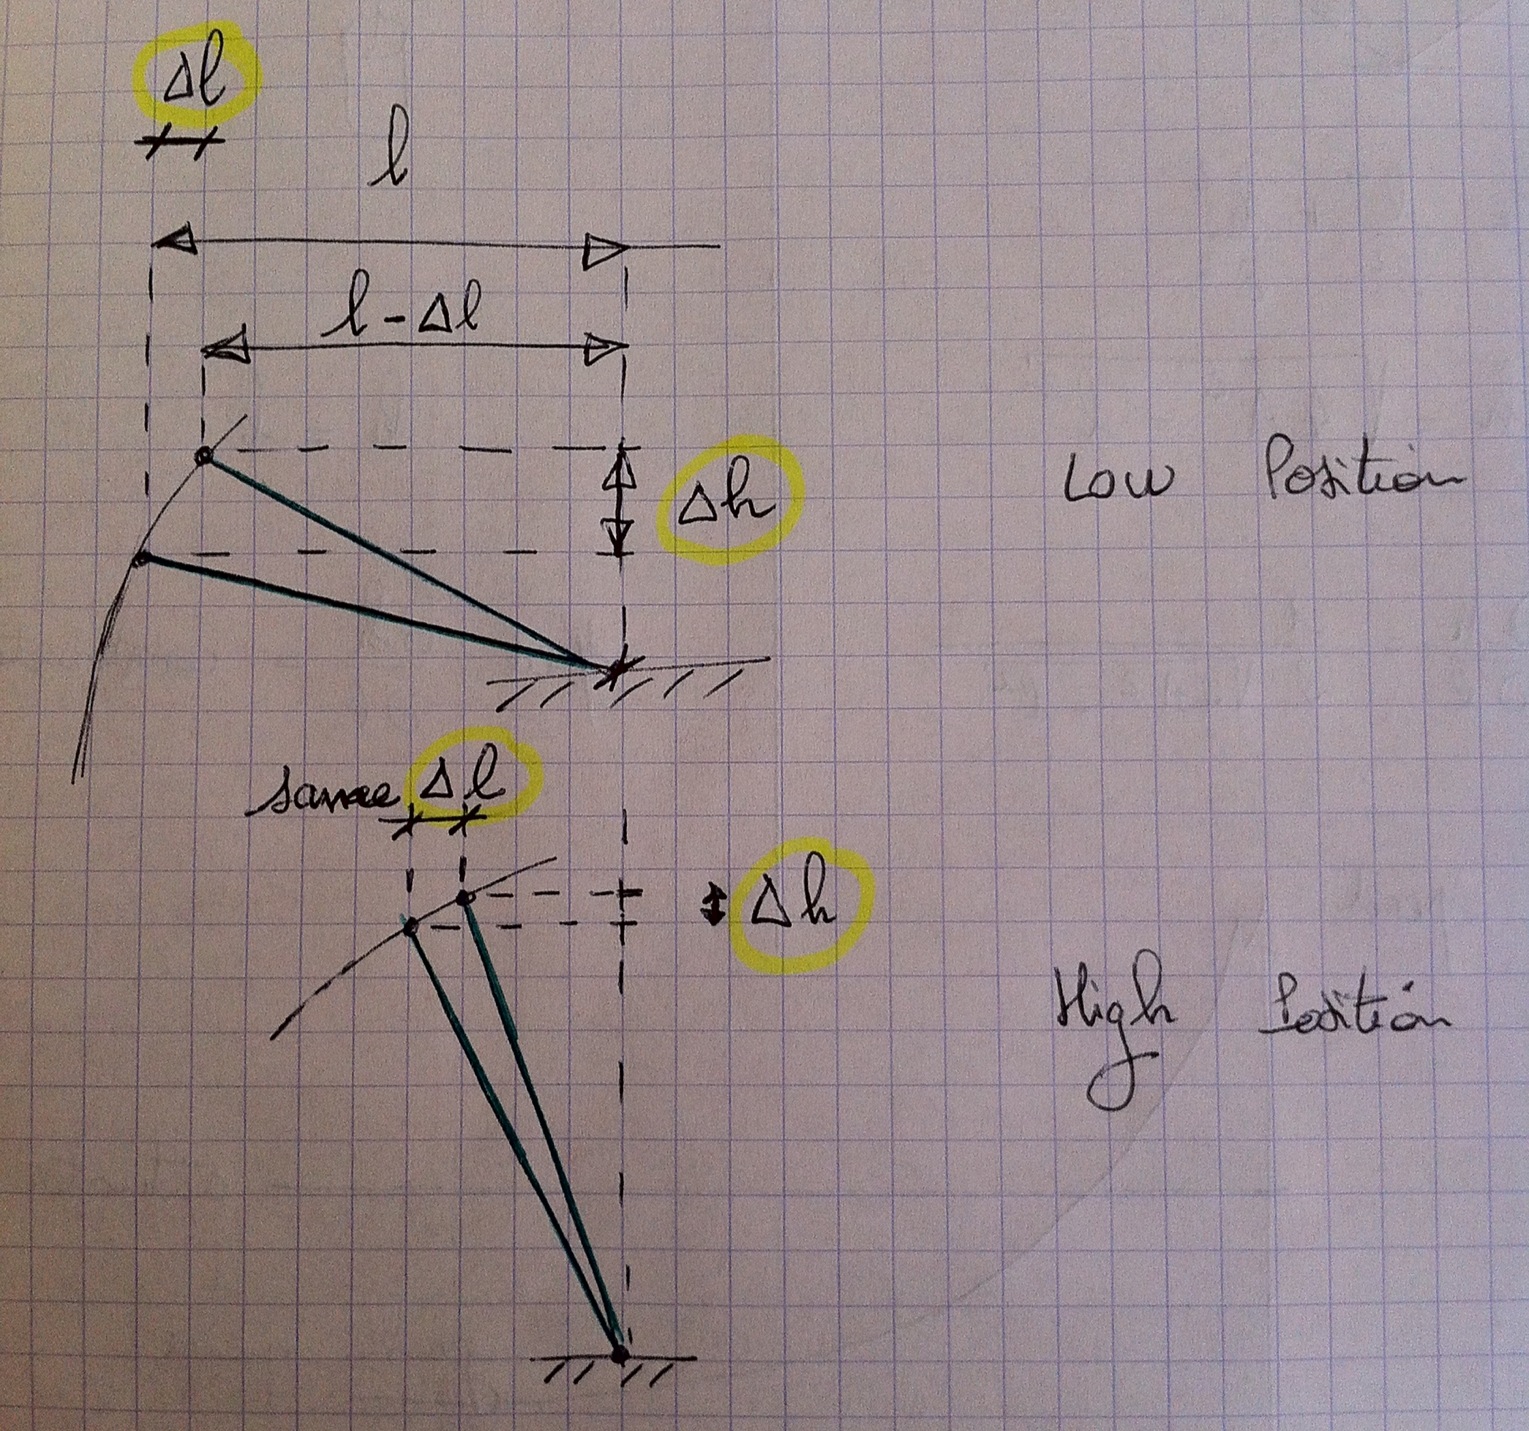 Δl
l
l - Δl
Δh
Low Position
same Δl
Δh
High Position